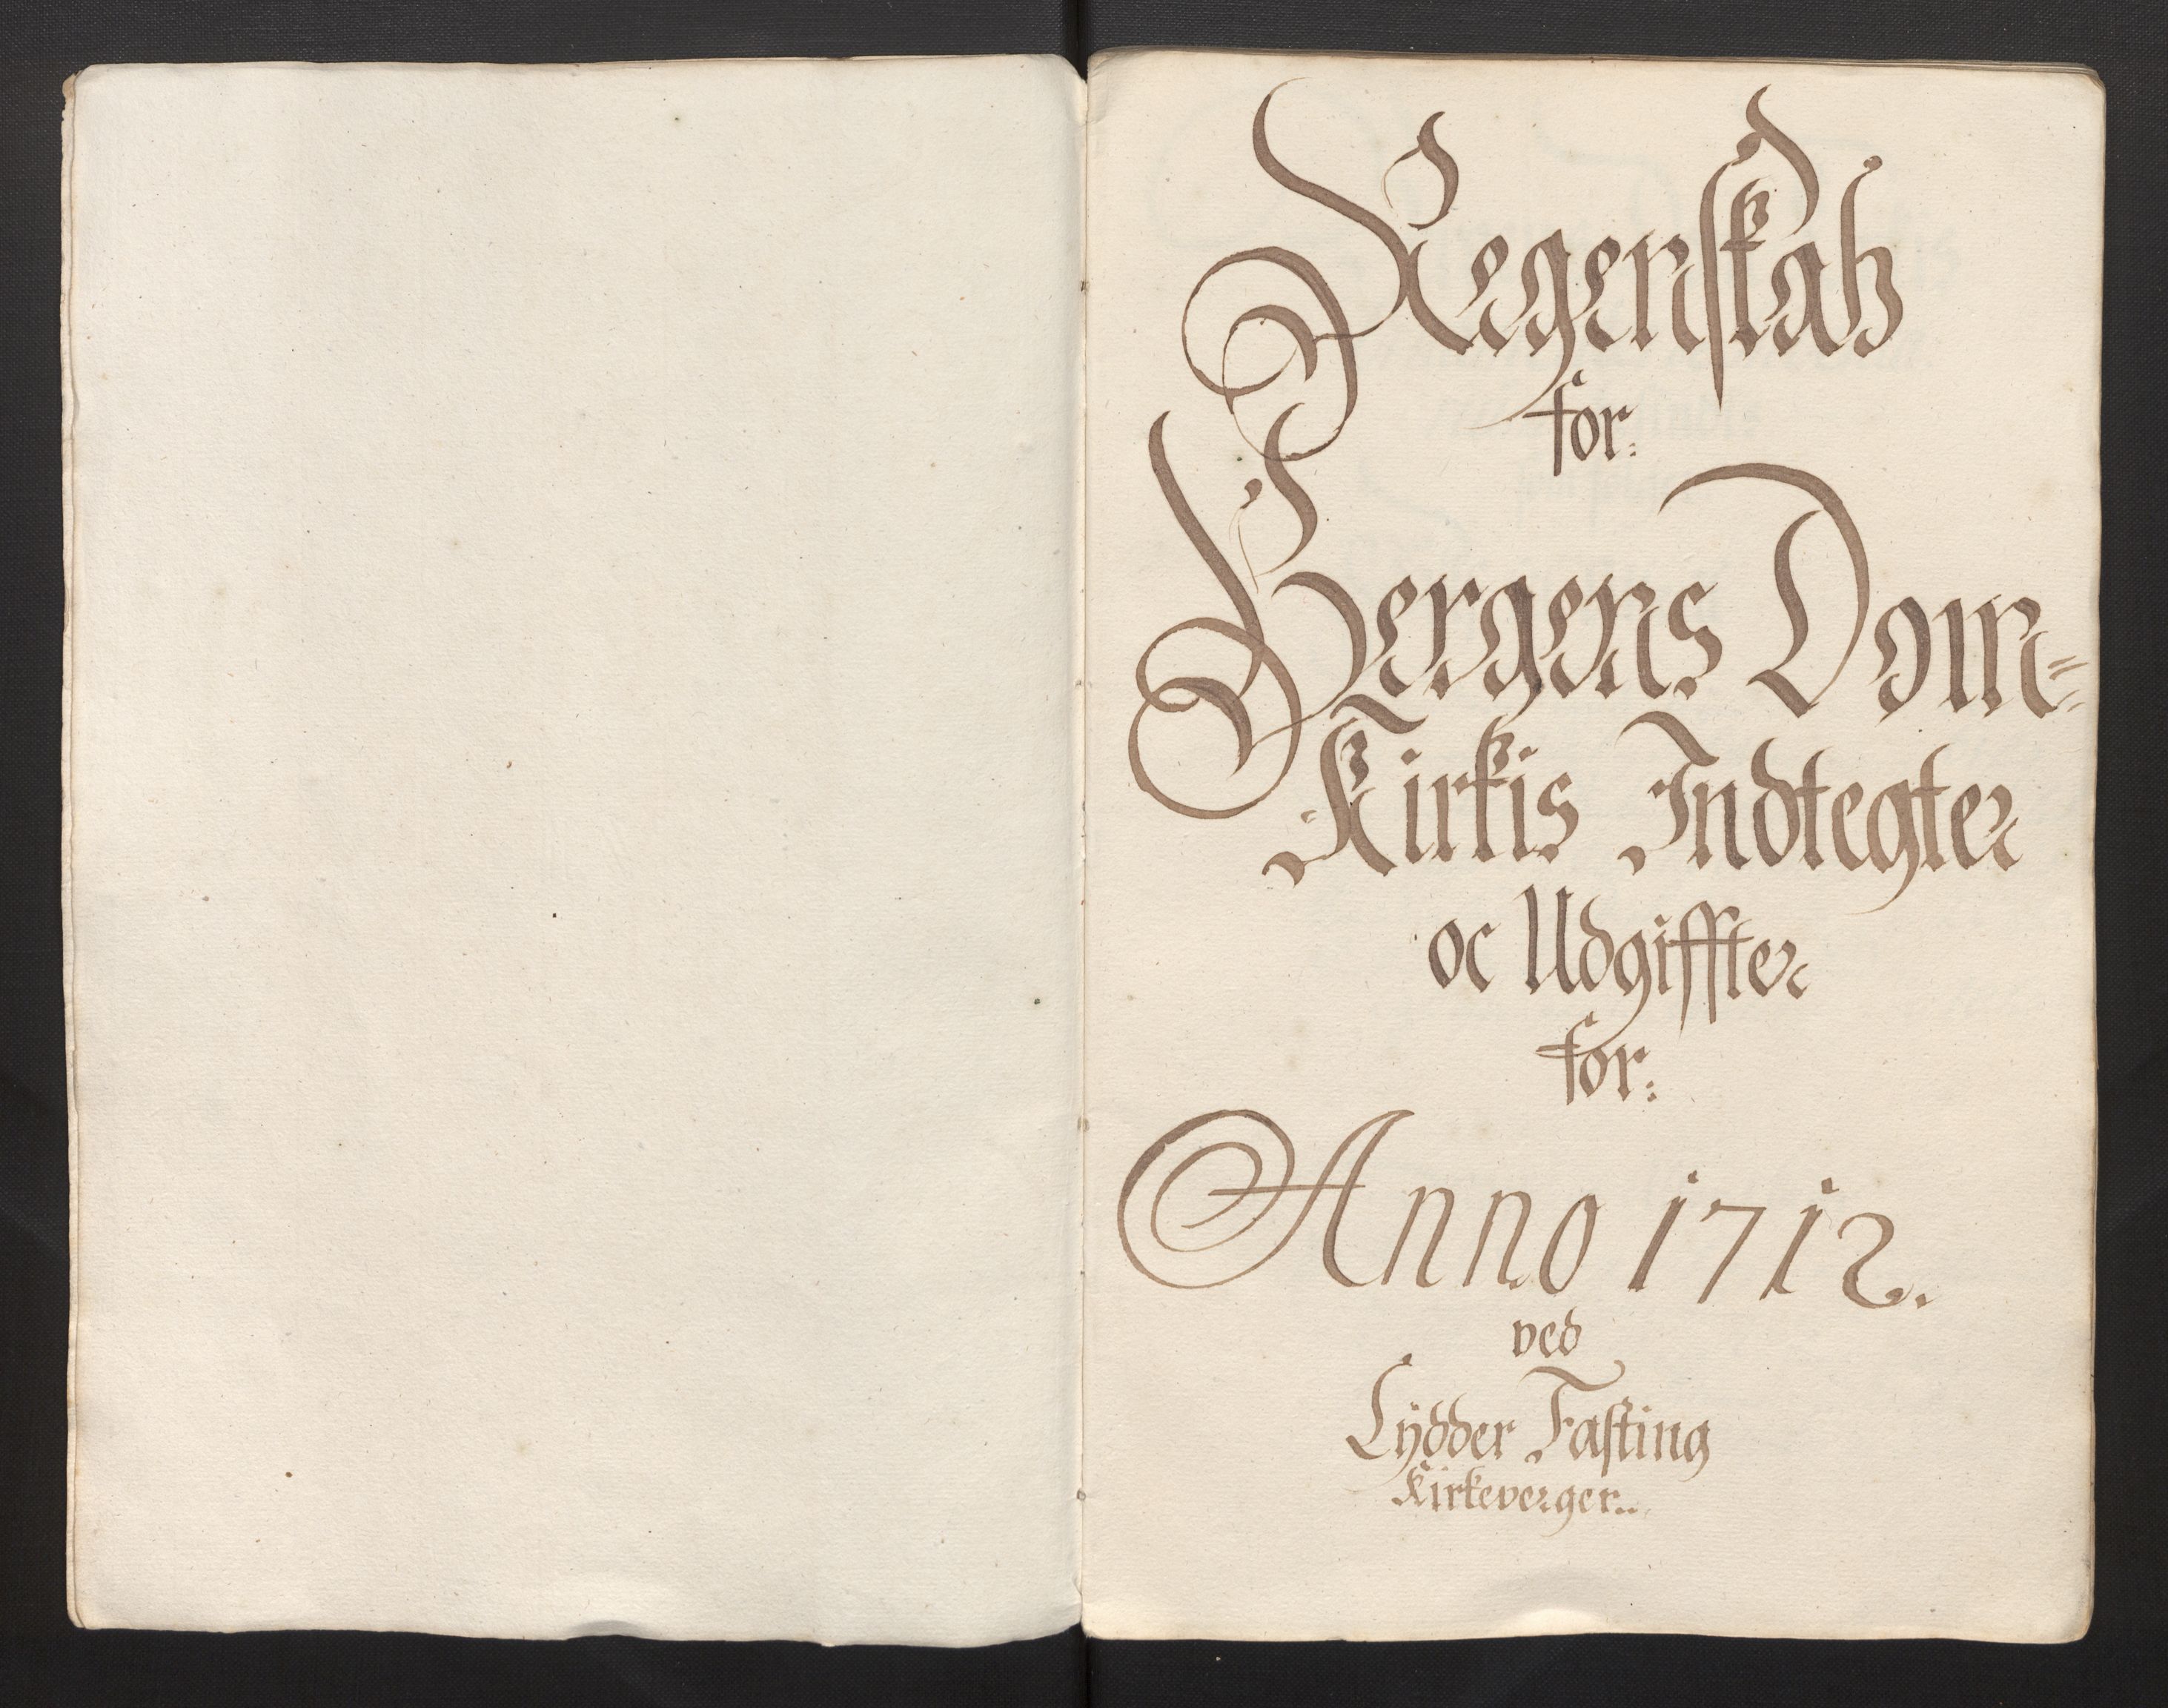 Regenskab
for:
Bergens Dom=
Kirkis Indtegter
oc Udgiffter
for:
Anno 1712.
ved
Lÿdder Fasting
Kirkeverger..